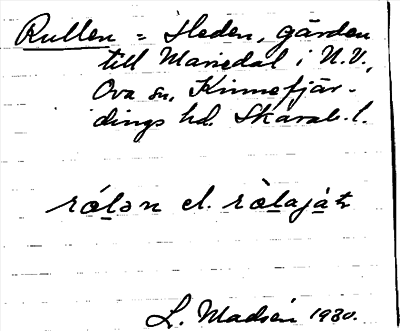 Rullen = Heden, gården
till Mariedal i N.V.,
Ova sn, Kinnefjär-
dings hd. Skarab. l.
rólən el. ròlaját
L. Madsén 1930.